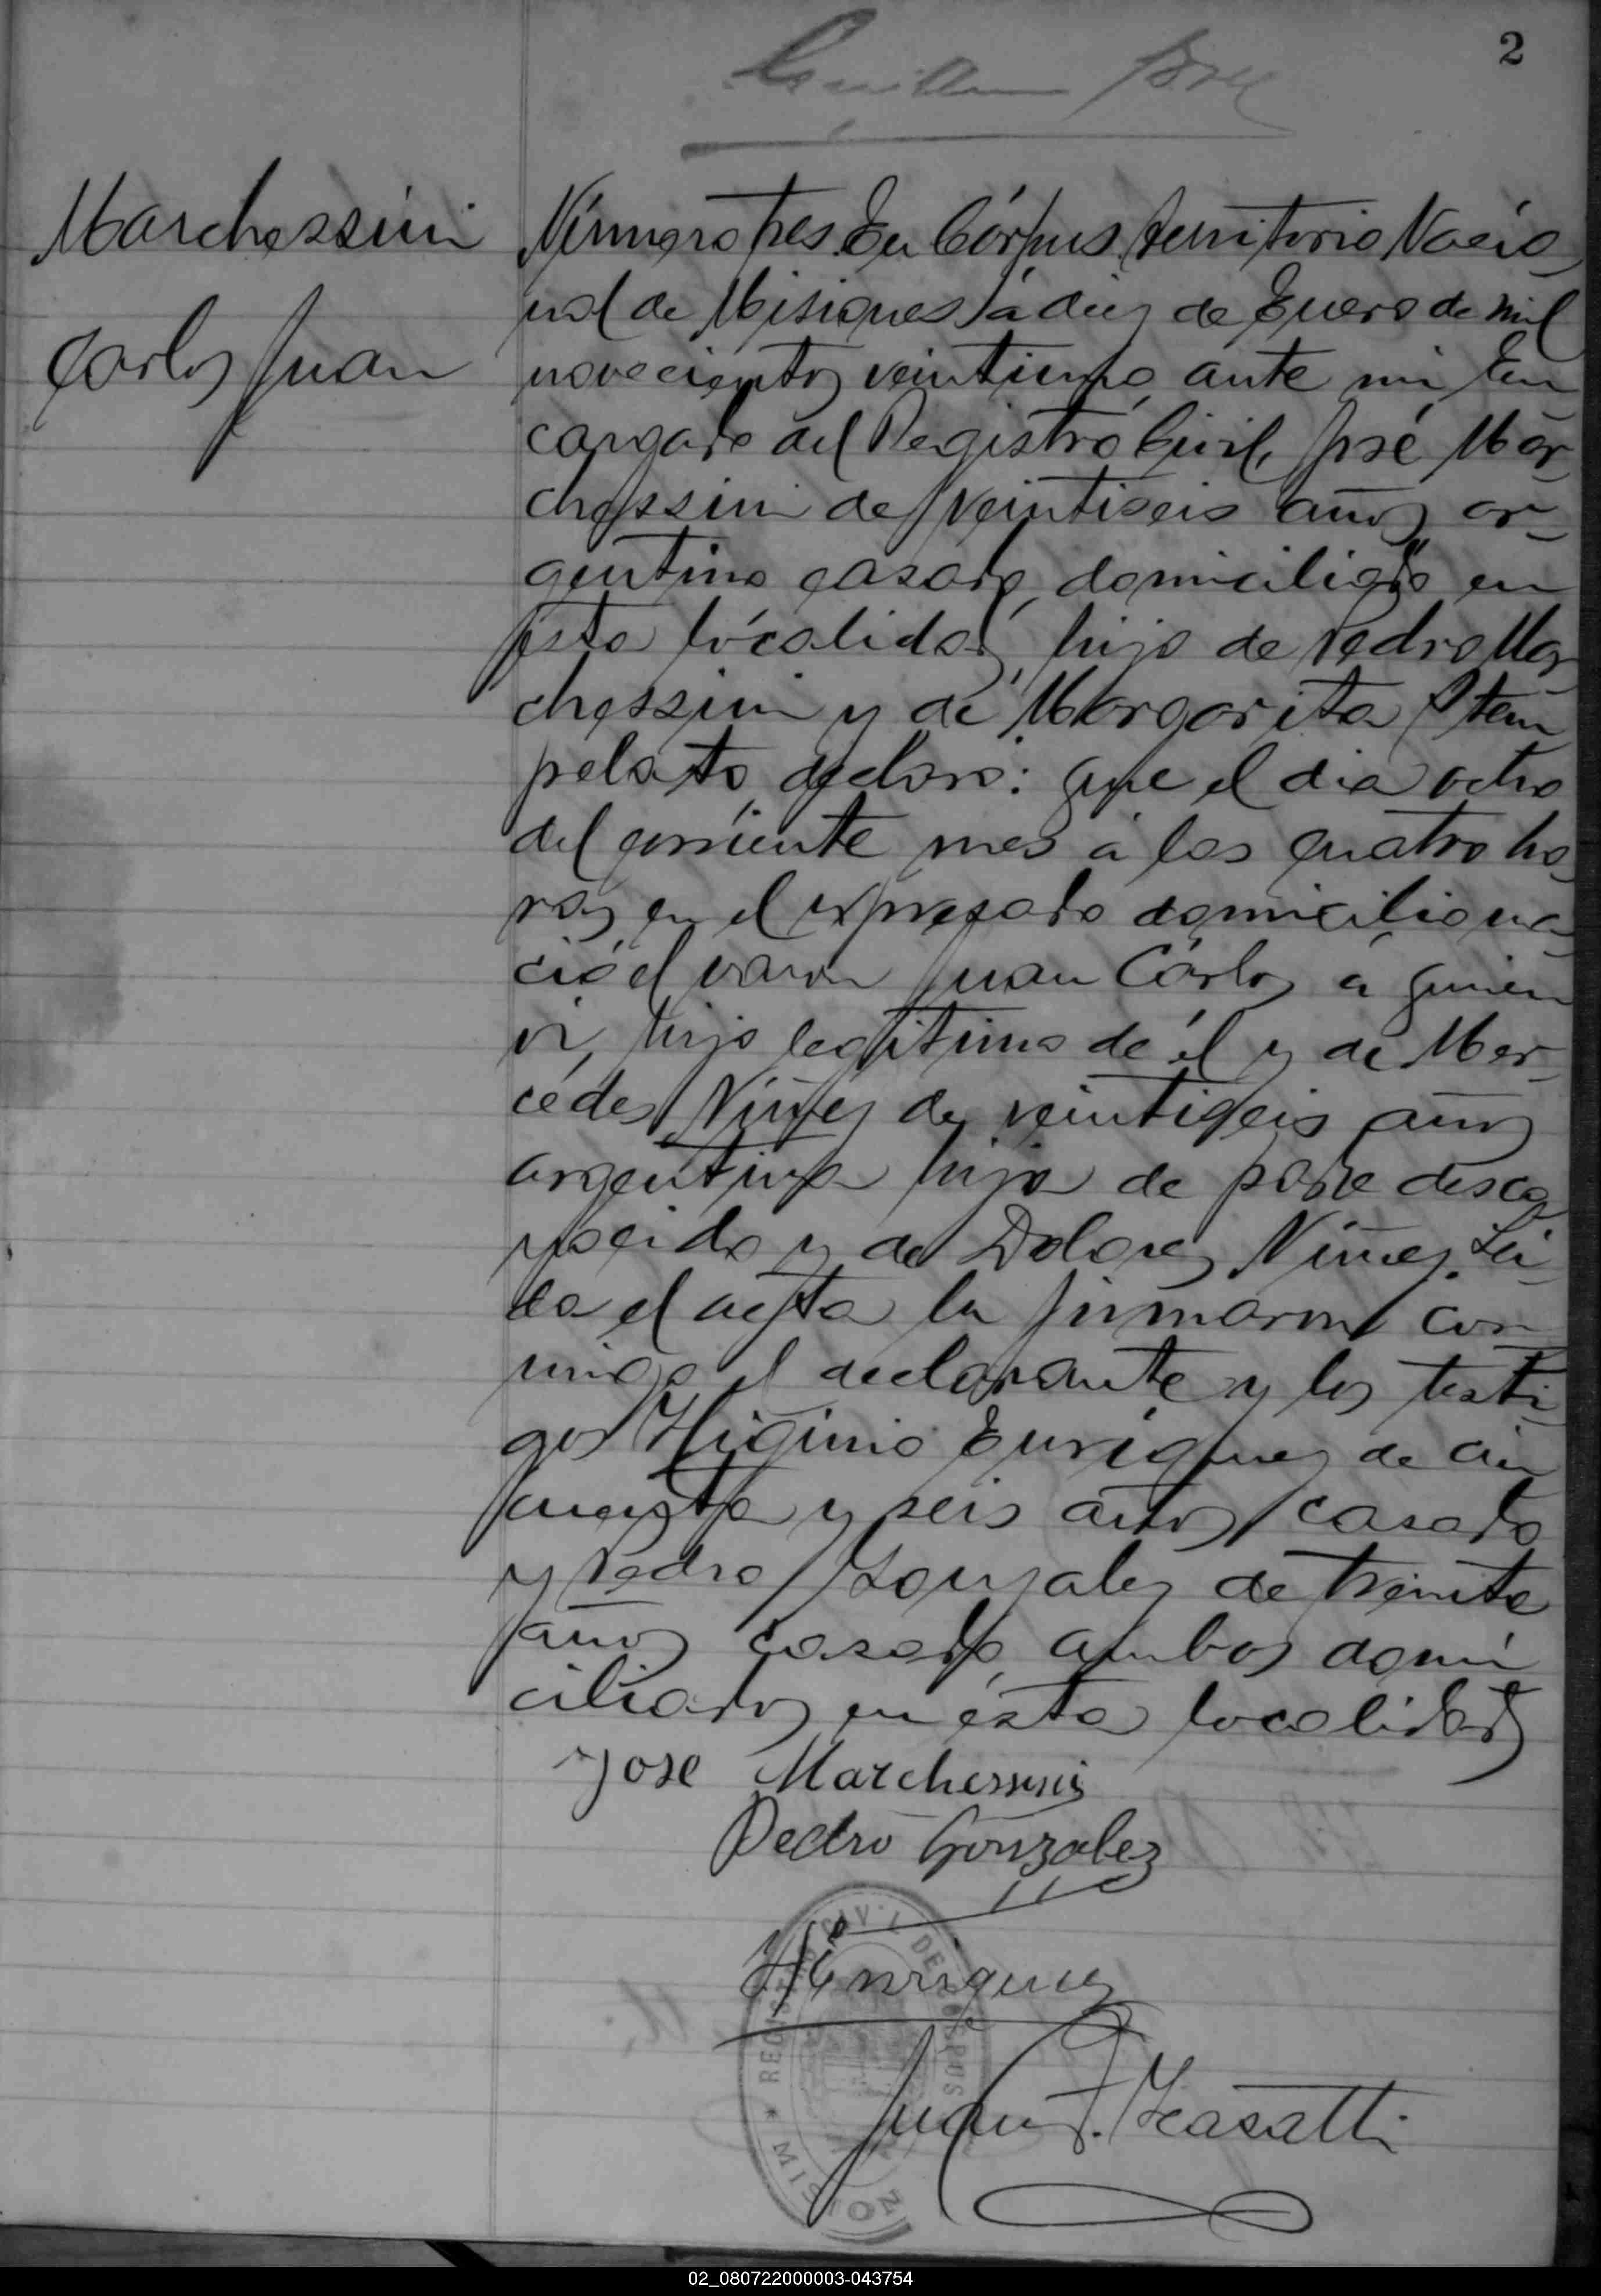 2
Marchessini
Carlos Juan
Número tres. En Córpus, territorio Nacio
nal de Misiones, á diez de Enero de mil
novecientos veintiuno, ante mi En
cargado del Registro Civil, José Mar
chessini de veintiseis años, ar-
gentino, casado, domiciliado en
ésta localidad, hijo de Pedro Mar
chessini y de Margarita Stam
pelato, declaró: que el dia ocho
del corriente mes á las cuatro ho
ras en el expresado domicilio na
ció el varon Juan Cárlos á quien
vi, hijo legítimo de él y de Mer-
cédes Núñez de veintiseis años
argentina hija de padre desco
nocido y de Dolores Núñez. Lei-
da el acta la firmaron con-
migo el declarante y los testi-
gos Higinio Enriquez de cin
cuenta y seis años, casado
y Pedro Gonzalez de treinta
años casado, ambos domi
ciliados en ésta localidad
Jose Marchessini
Pedro Gonzalez
HEnriquez
Juan F.
REGISTRO CIVIL DE CORPUS
* MISIONES
02_080722000003-043754